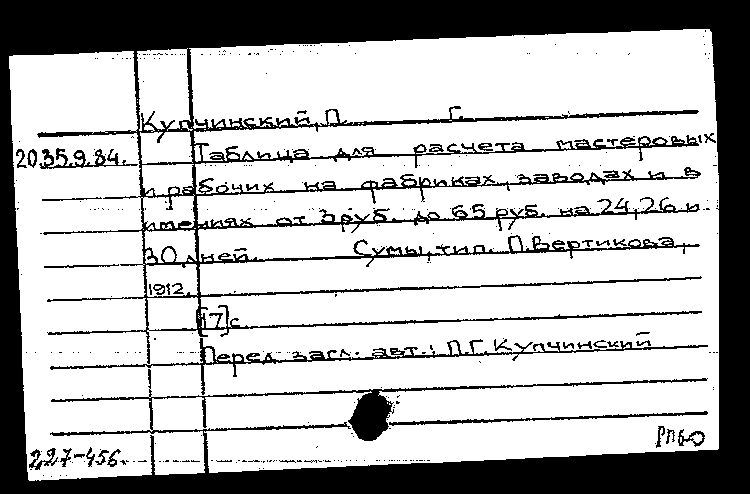 Купчинский, П. Г.
20.35.9.84. Таблица для расчета мастеровых
и рабочих на фабриках, заводах и в
имениях от 3 руб. до 65 руб. на 24, 26 и
30 дней. Сумы, тип. П. Вертикова,
1912.
[17]с
Перед загл. авт.: П.Г. Купчинский
227-456.